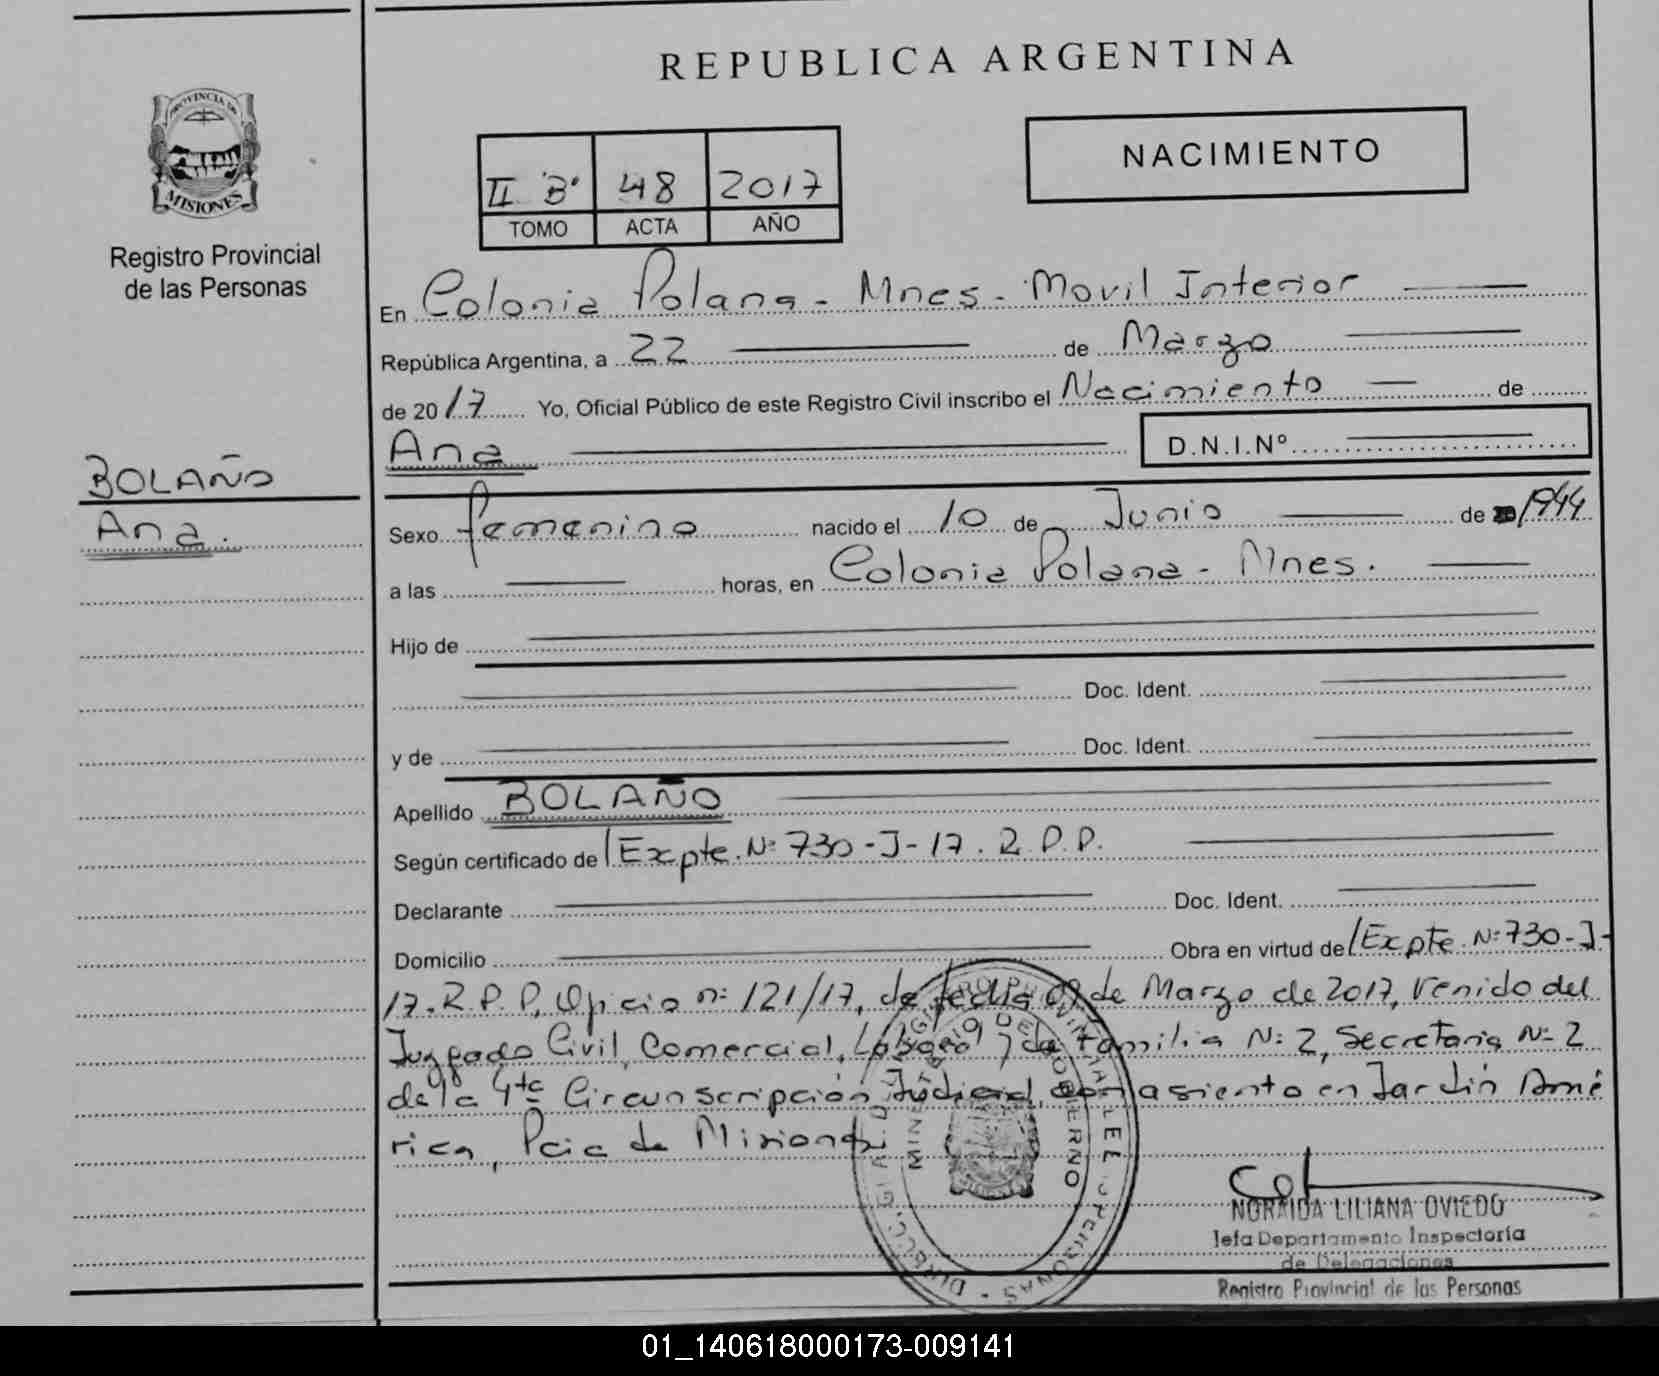 REPUBLICA ARGENTINA
PROVINCIA DE
MISIONES
Registro Provincial
de las Personas
NACIMIENTO
II "B" 48 2017
TOMO ACTA AÑO
En Colonia Polana - Mnes - Movil Interior
República Argentina, a 22 de Marzo
de 2017 Yo, Oficial Público de este Registro Civil inscribo el Nacimiento de
Ana D.N.I.Nº
BOLAÑO
Ana.
Sexo femenino nacido el 10 de Junio de 1944
a las horas, en Colonia Polana - Mnes.
Hijo de
Doc. Ident.
y de Doc. Ident.
Apellido BOLAÑO
Según certificado de Expte. Nº 730-J-17. R.P.P.
Declarante Doc. Ident.
Domicilio Obra en virtud de Expte. Nº 730-J-
17. R.P.P, Oficio nº 121/17, de fecha 09 de Marzo de 2017, venido del
Juzgado Civil, Comercial, Laboral y de Familia Nº 2, Secretaria Nº 2
de la 4ta Circunscripción Judicial, con asiento en Jardín Amé
rica, Pcia de Misiones
MINISTERIO DE GOBIERNO
NORAIDA LILIANA OVIEDO
Jefa Departamento Inspectoría
de Delegaciones
Registro Provincial de las Personas
01_140618000173-009141